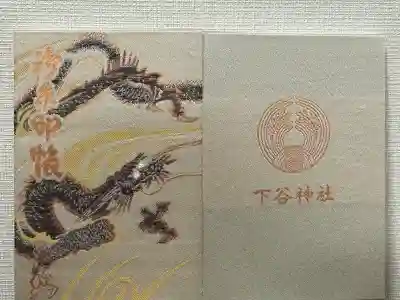 御朱印帳
下谷神社